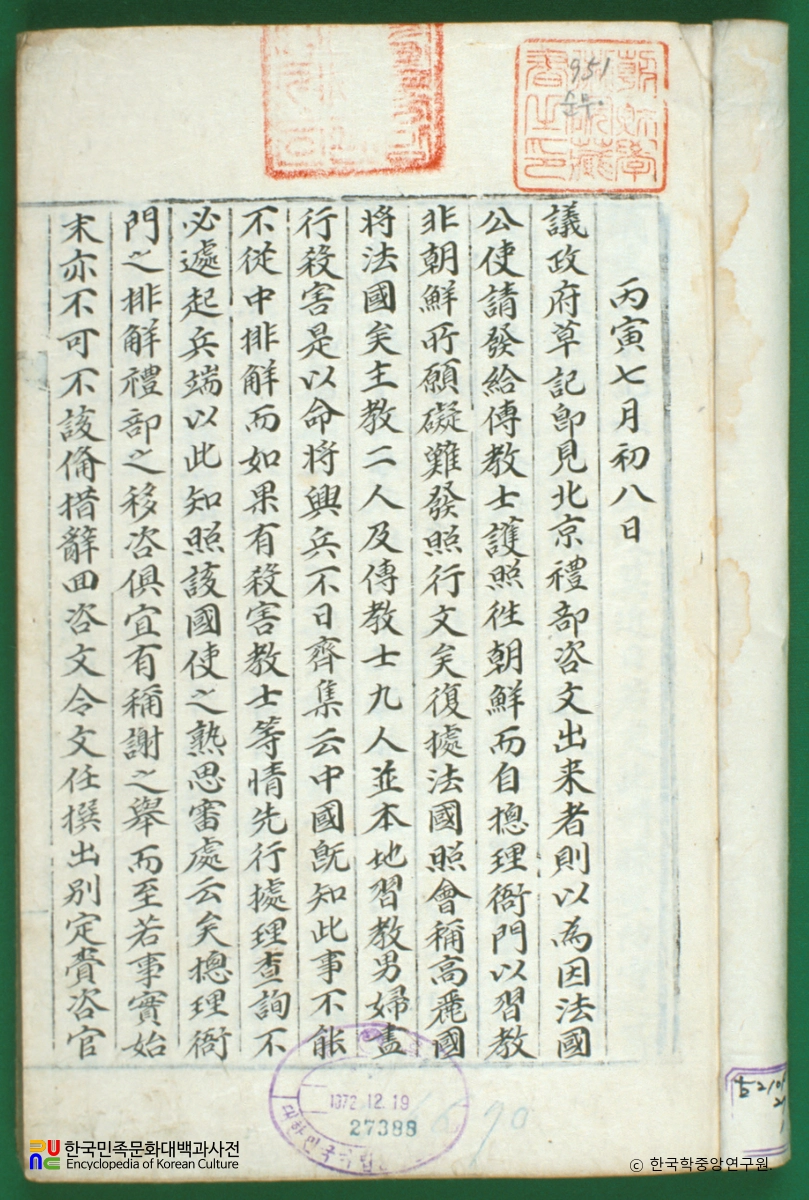 丙寅七月初八日
議政府草記卽見北京禮部咨文出来者則以為因法國
公使請發給傳教士護照徃朝鮮而自摠理衙門以習教
非朝鮮所願礙難發照行文矣復據法國照會稱高麗國
将法國矣主教二人及傳教士九人並本地習教男婦盡
行殺害是以命将興兵不日齊集云中國旣知此事不能
不從中排解而如果有殺害教士等情先行據理查詢不
必遽起兵端以此知照該國使之熟思審處云矣摠理衙
門之排解禮部之移咨俱宜有稱謝之舉而至若事實始
末亦不可不該偹措辭回咨文令文任撰出別定賫咨官
951
1972.12.19
27388
한국민족문화대백과사전
Encyclopedia of Korean Culture
© 한국학중앙연구원